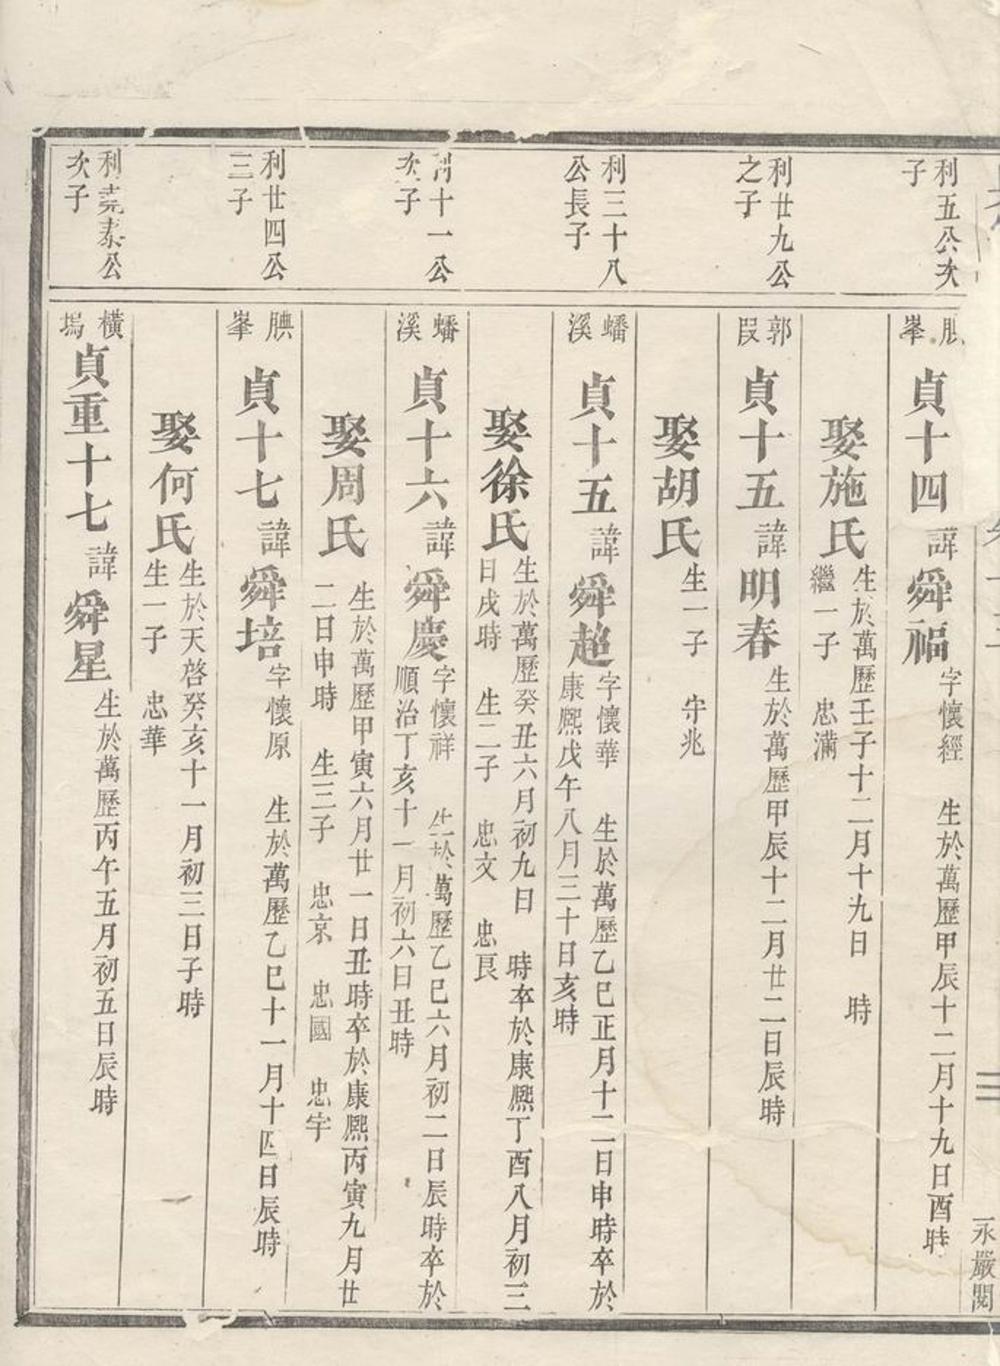 利五公次
子
腆峯
貞十四諱舜福
字懷經　生於萬歷甲辰十二月十九日酉時
娶施氏
生於萬歷壬子十二月十九日　時
繼一子　忠滿
利廿九公
之子
郭叚
貞十五諱明春
生於萬歷甲辰十二月廿二日辰時
娶胡氏
生一子　守兆
利三十八
公長子
蟠溪
貞十五諱舜超
字懷華　生於萬歷乙巳正月十二日申時卒於
康熈戊午八月三十日亥時
娶徐氏
生於萬歷癸丑六月初九日　時卒於康熈丁酉八月初三
日戌時　生二子　忠文　忠良
利十一公
次子
蟠溪
貞十六諱舜慶
字懷祥　生於萬歷乙巳六月初二日辰時卒於
順治丁亥十一月初六日丑時
娶周氏
生於萬歷甲寅六月廿一日丑時卒於康熈丙寅九月廿
二日申時　生三子　忠京　忠國　忠宇
利廿四公
三子
腆峯
貞十七諱舜培
字懷原　生於萬歷乙巳十一月十四日辰時
娶何氏
生於天啓癸亥十一月初三日子時
生一子　忠華
利堯泰公
次子
橫塢
貞重十七諱舜星
生於萬歷丙午五月初五日辰時
永嚴閣